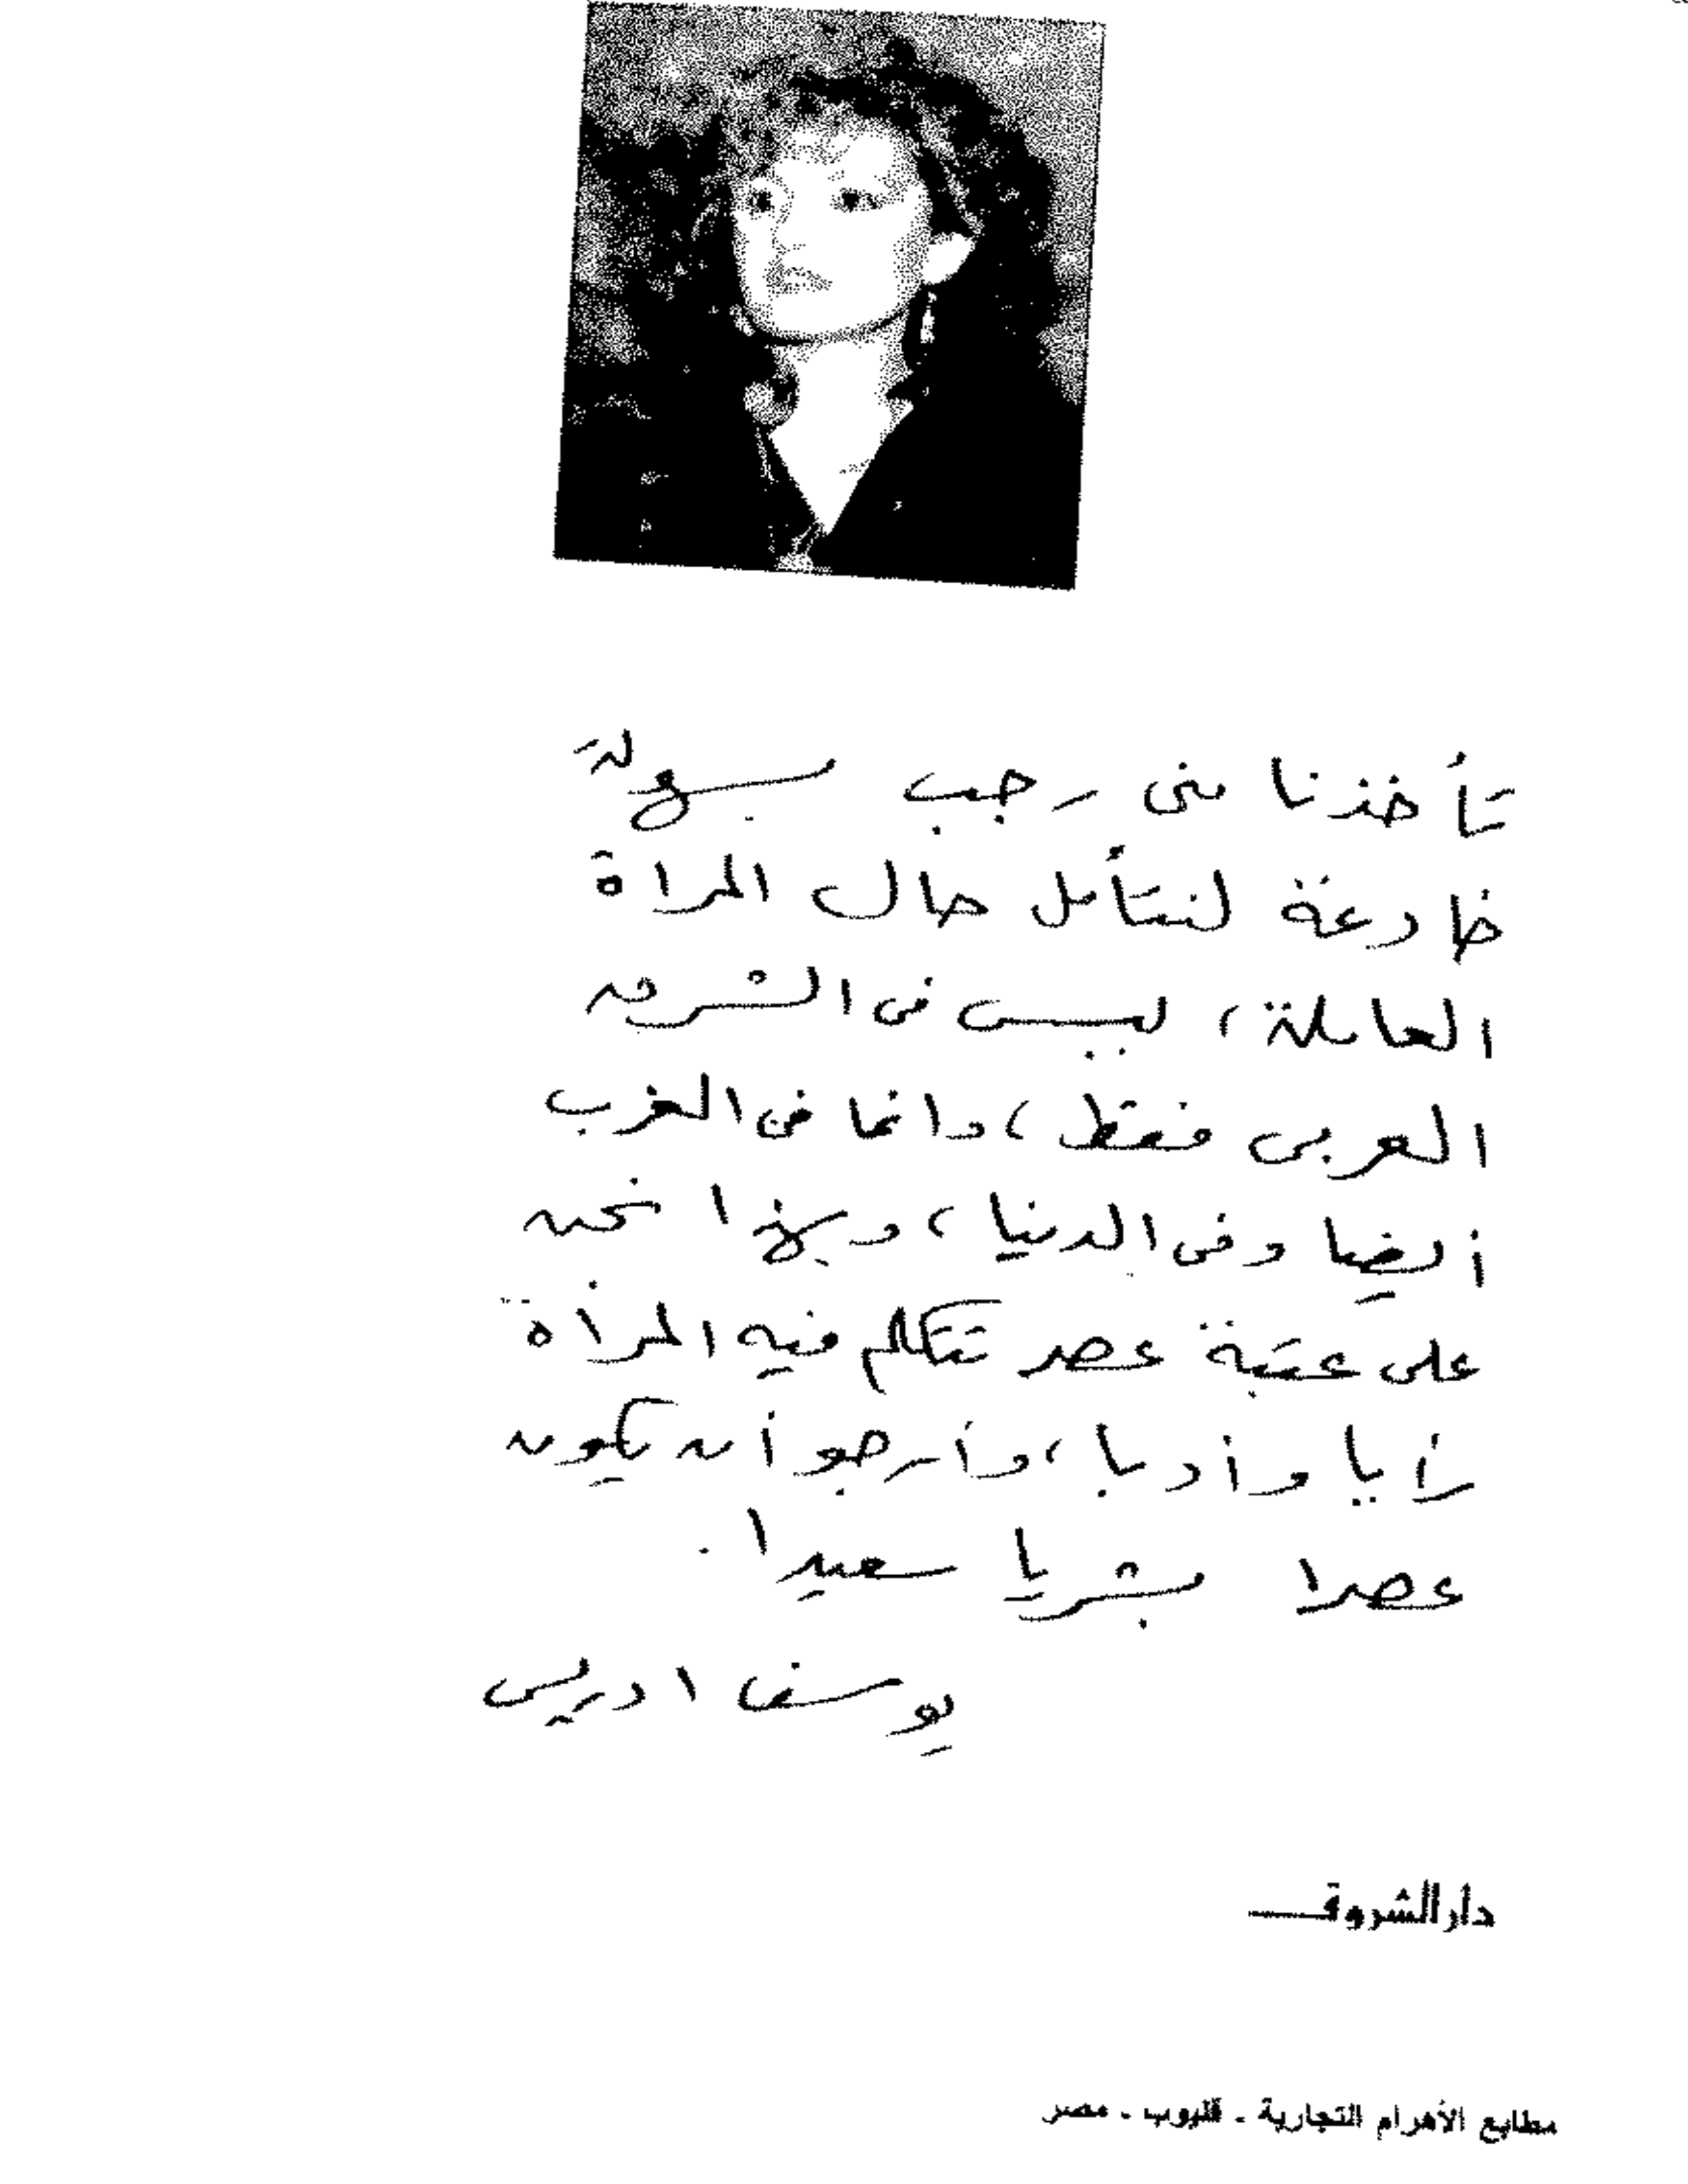 تأخذنا منى رجب بسهولة
خادعة لنتأمل حال المرأة
العاملة، ليس فى الشرق
العربى فقط، وانما فى الغرب
أيضا وفى الدنيا، وبهذا نحن
على عتبة عصر تتكلم فيه المرأة
رأيا وأدبا، وأرجو أن يكون
عصرا بشريا سعيدا.
يوسف ادريس
دار الشروق
مطابع الأهرام التجارية - قليوب - مصر